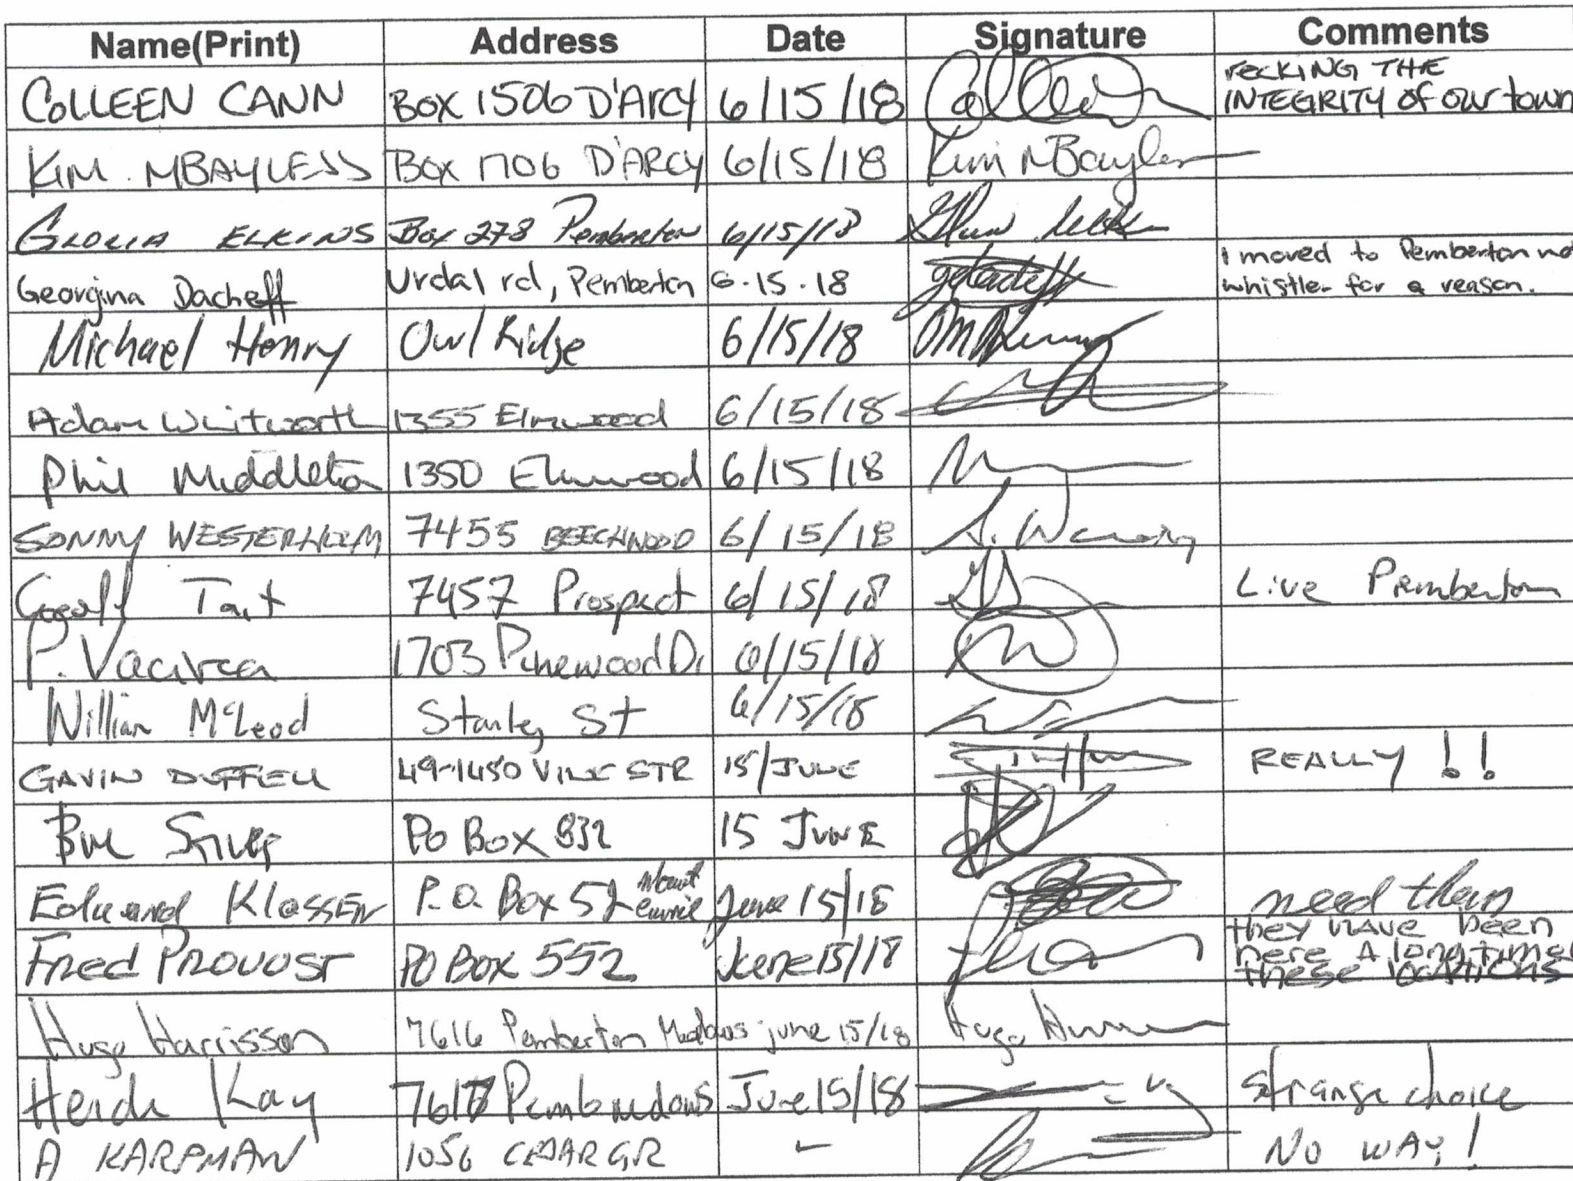 Name(Print) Address Date Signature Comments
COLLEEN CANN BOX 1506 D'ARCY 6/15/18 THE
INTEGRITY OF OUR town
KIM MBAYLESS BOX 1706 D'ARCY 6/15/18 Kim MBayless
GLORIA ELKINS Box 278 Pemberton 6/15/18
Georgina Dacheff Urdal rd, Pemberton 6.15.18 I moved to Pemberton not
whistler for a reason.
Michael Henry Owl Ridge 6/15/18
Adam Whitworth 1355 Elmwood 6/15/18
Phil Middleton 1350 Elmwood 6/15/18
SONNY WESTERHOLM 7455 BEECHWOOD 6/15/18
Tait 7457 Prospect 6/15/18 Live Pemberton
P. Vacirca 1703 Pinewood Dr 6/15/18
William McLeod Stanley St 6/15/18
GAVIN DUFFIELL 49-1450 VINE STR 15/JUNE REALLY !!
PO BOX 832 15 JUNE
Edward KlassEN P.O. Box 52 Mount Currie June 15/18 need them
Fred PROVOST PO BOX 552 June 15/18 they HAVE been
here A long time
these locations
Hugo Harrisson 7616 Pemberton Meadows june 15/18 Hugo
Heidi Kay 7617 Pemb medows June 15/18 strange choice
A KARPMAN 1056 CEDAR GR - NO WAY!